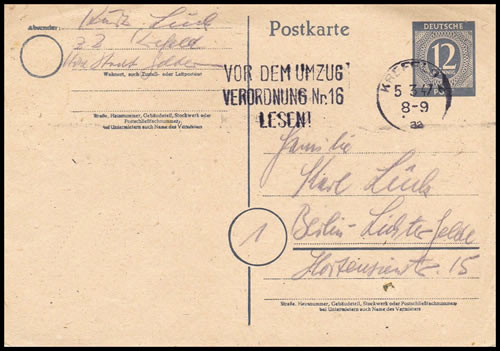 Absender:
Lück
22 Krefeld
Wohnort, auch Zustell- oder Leitpostamt
Straße, Hausnummer, Gebäudeteil, Stockwerk oder
Postschließfachnummer,
bei Untermietern auch Name des Vermieters
Postkarte
DEUTSCHE
12
VOR DEM UMZUG
VERORDNUNG Nr. 16
LESEN!
KREFELD
5.3.47
8-9
aa
Familie
Karl Lück
1
Berlin-Lichterfelde
Hortensienstr. 15
Straße, Hausnummer, Gebäudeteil, Stockwerk oder Postschließfachnummer,
bei Untermietern auch Name des Vermieters